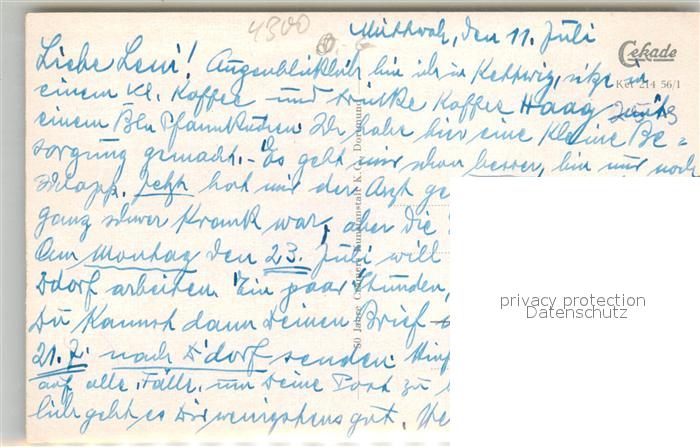 4300
Mittwoch, den 11. Juli
Cekade
Liebe Leni! Augenblicklich bin ich in Kettwig, sitze in
Ket 214 56/1
einem kl. Kaffee und trinke Kaffee Haag mit
einem Bln Pfannkuchen. Ich habe hier eine kleine Be=
sorgung gemacht. - Es geht mir schon besser, bin nur noch
schlapp. Jetzt hat mir der Arzt ge
ganz schwer krank war, aber die
Am Montag den 23. Juli will
Ddorf arbeiten. Ein paar Stunden,
Du kannst dann Deinen Brief
21.7. nach D'dorf senden.
auf alle Fälle, um Deine Post zu
lich geht es Dir wenigstens gut.
50 Jahre Cramers Kunstanstalt K.G., Dortmund
privacy protection
Datenschutz